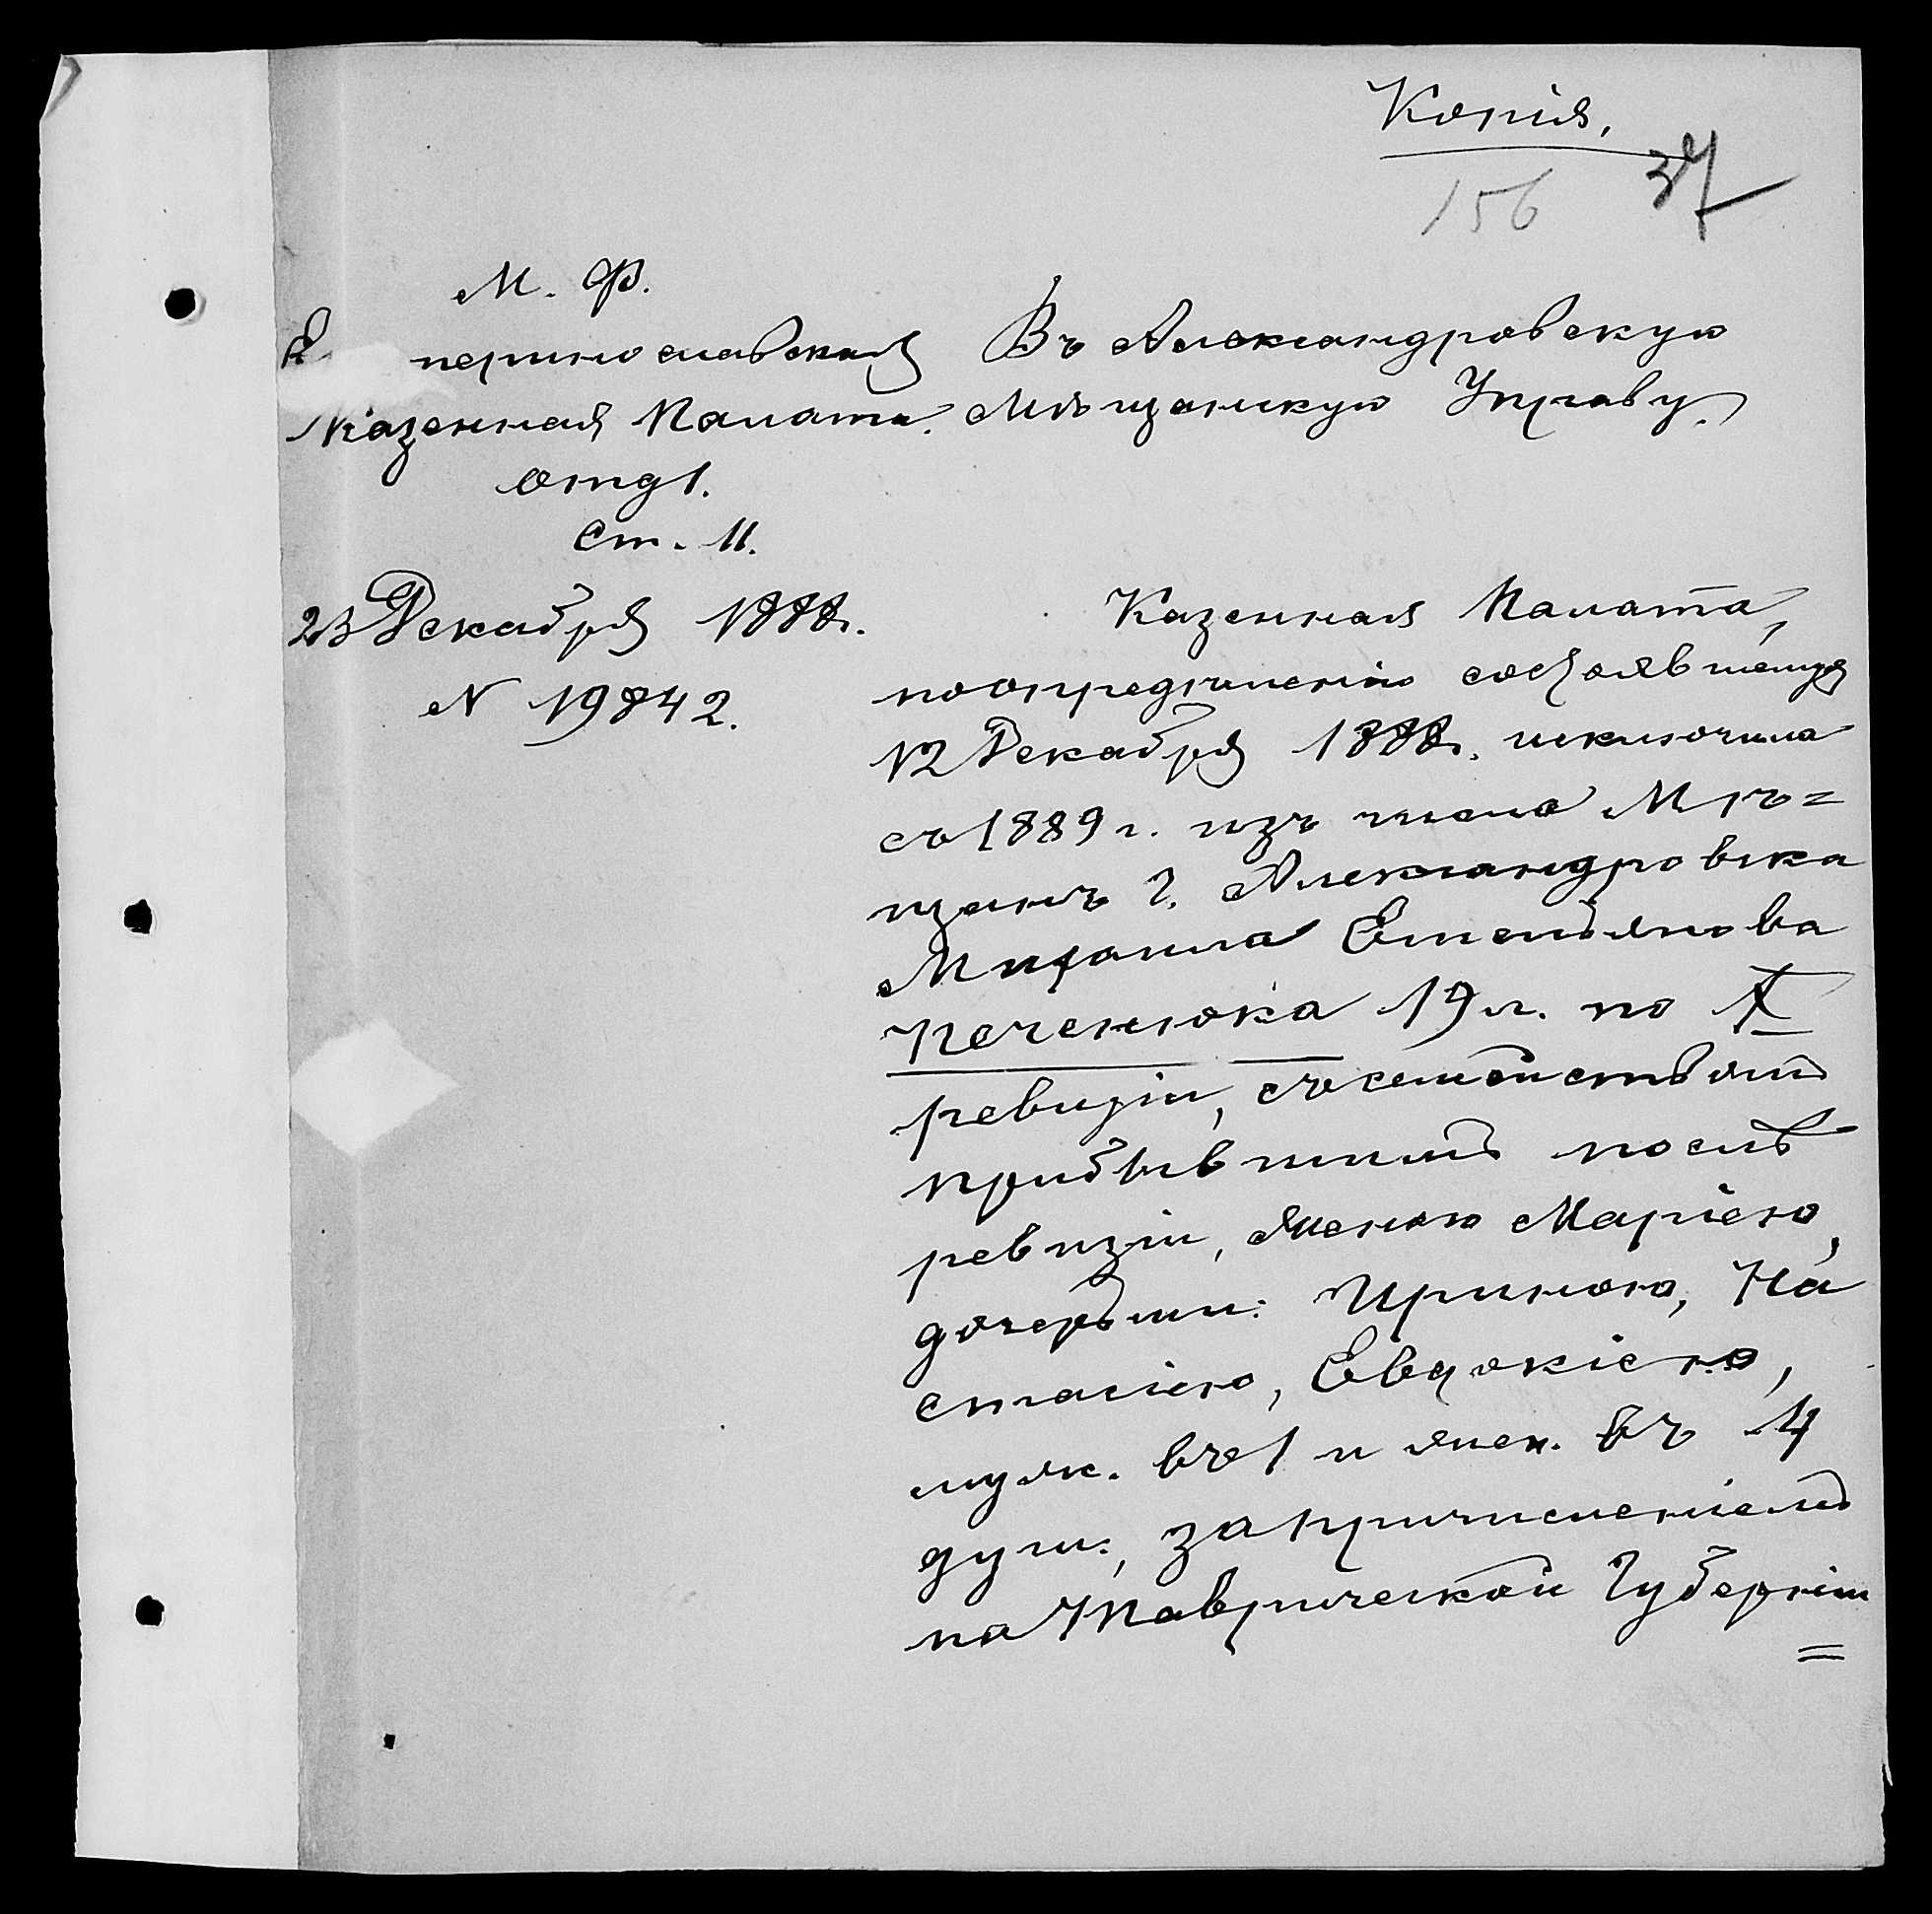 Копія.
37
156
М. Ф.
Е перинославская
Казенная Палата.
отд 1.
Ст. 11.
23 Декабря 1888 г.
№ 19842.
Въ Александровскую
Мѣщанскую Управу.
Казенная Палата,
по опредѣленію состоявшемуся
12 Декабря 1888 г. исключила
съ 1889 г. изъ числа Мѣ=
щанъ г. Александровска
Михаила Емельянова
Печенюка 19 л. по X
ревизіи, съ семействомъ
прибывшимъ послѣ
ревизіи, женою Маріею,
дочерьми: Ириною, На
стасіею, Евдокіею,
муж. въ 1 и жен. въ 4
душ., за причисленіемъ
по Таврической Губерніи
=